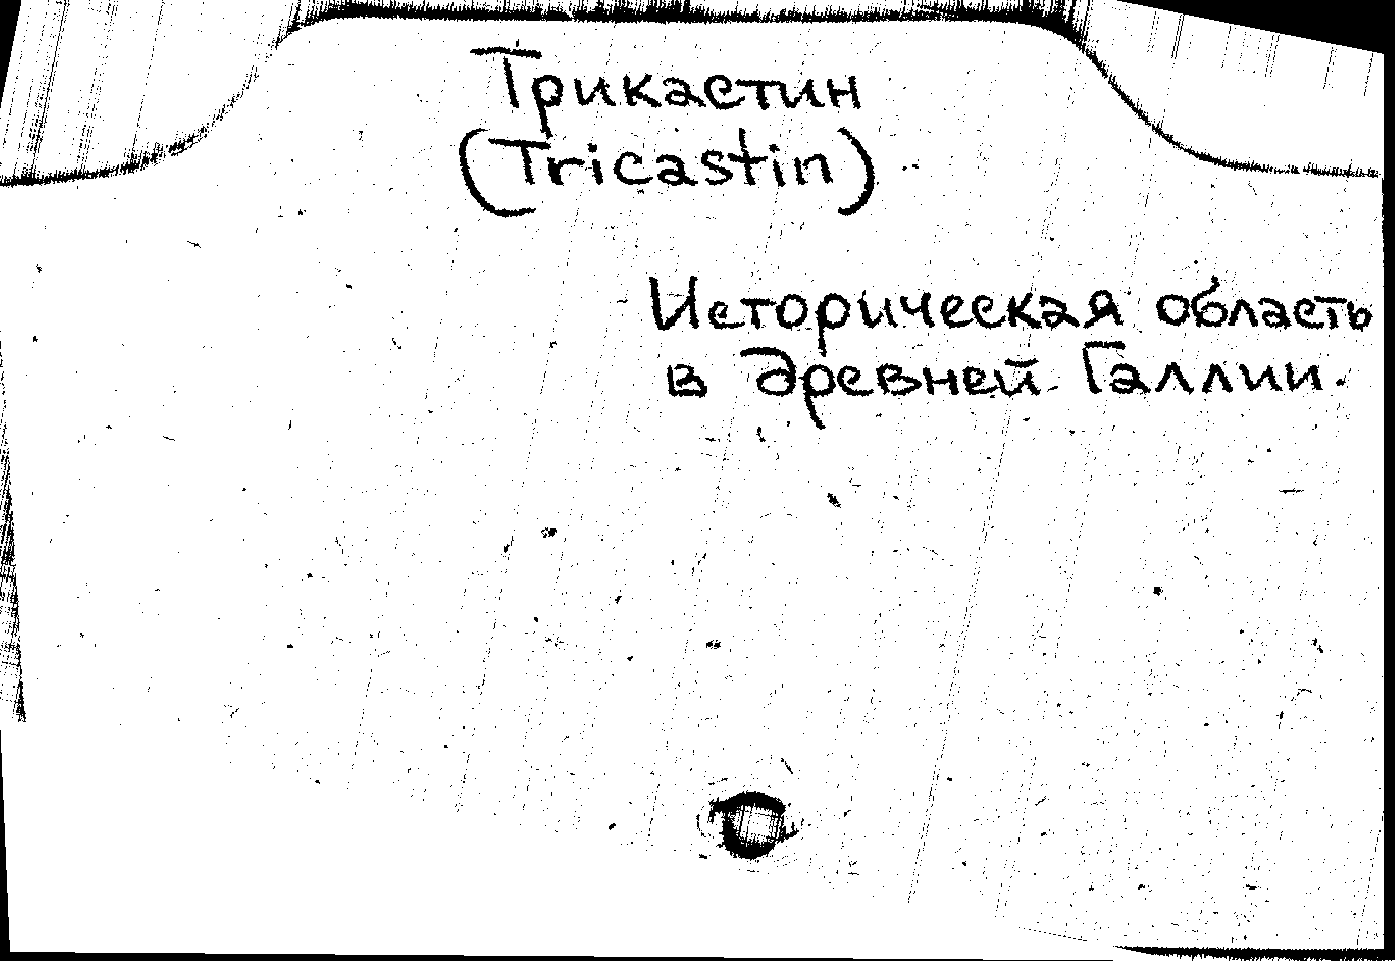 Трикастин
(Tricastin)
Историческая область
в древней Галлии.